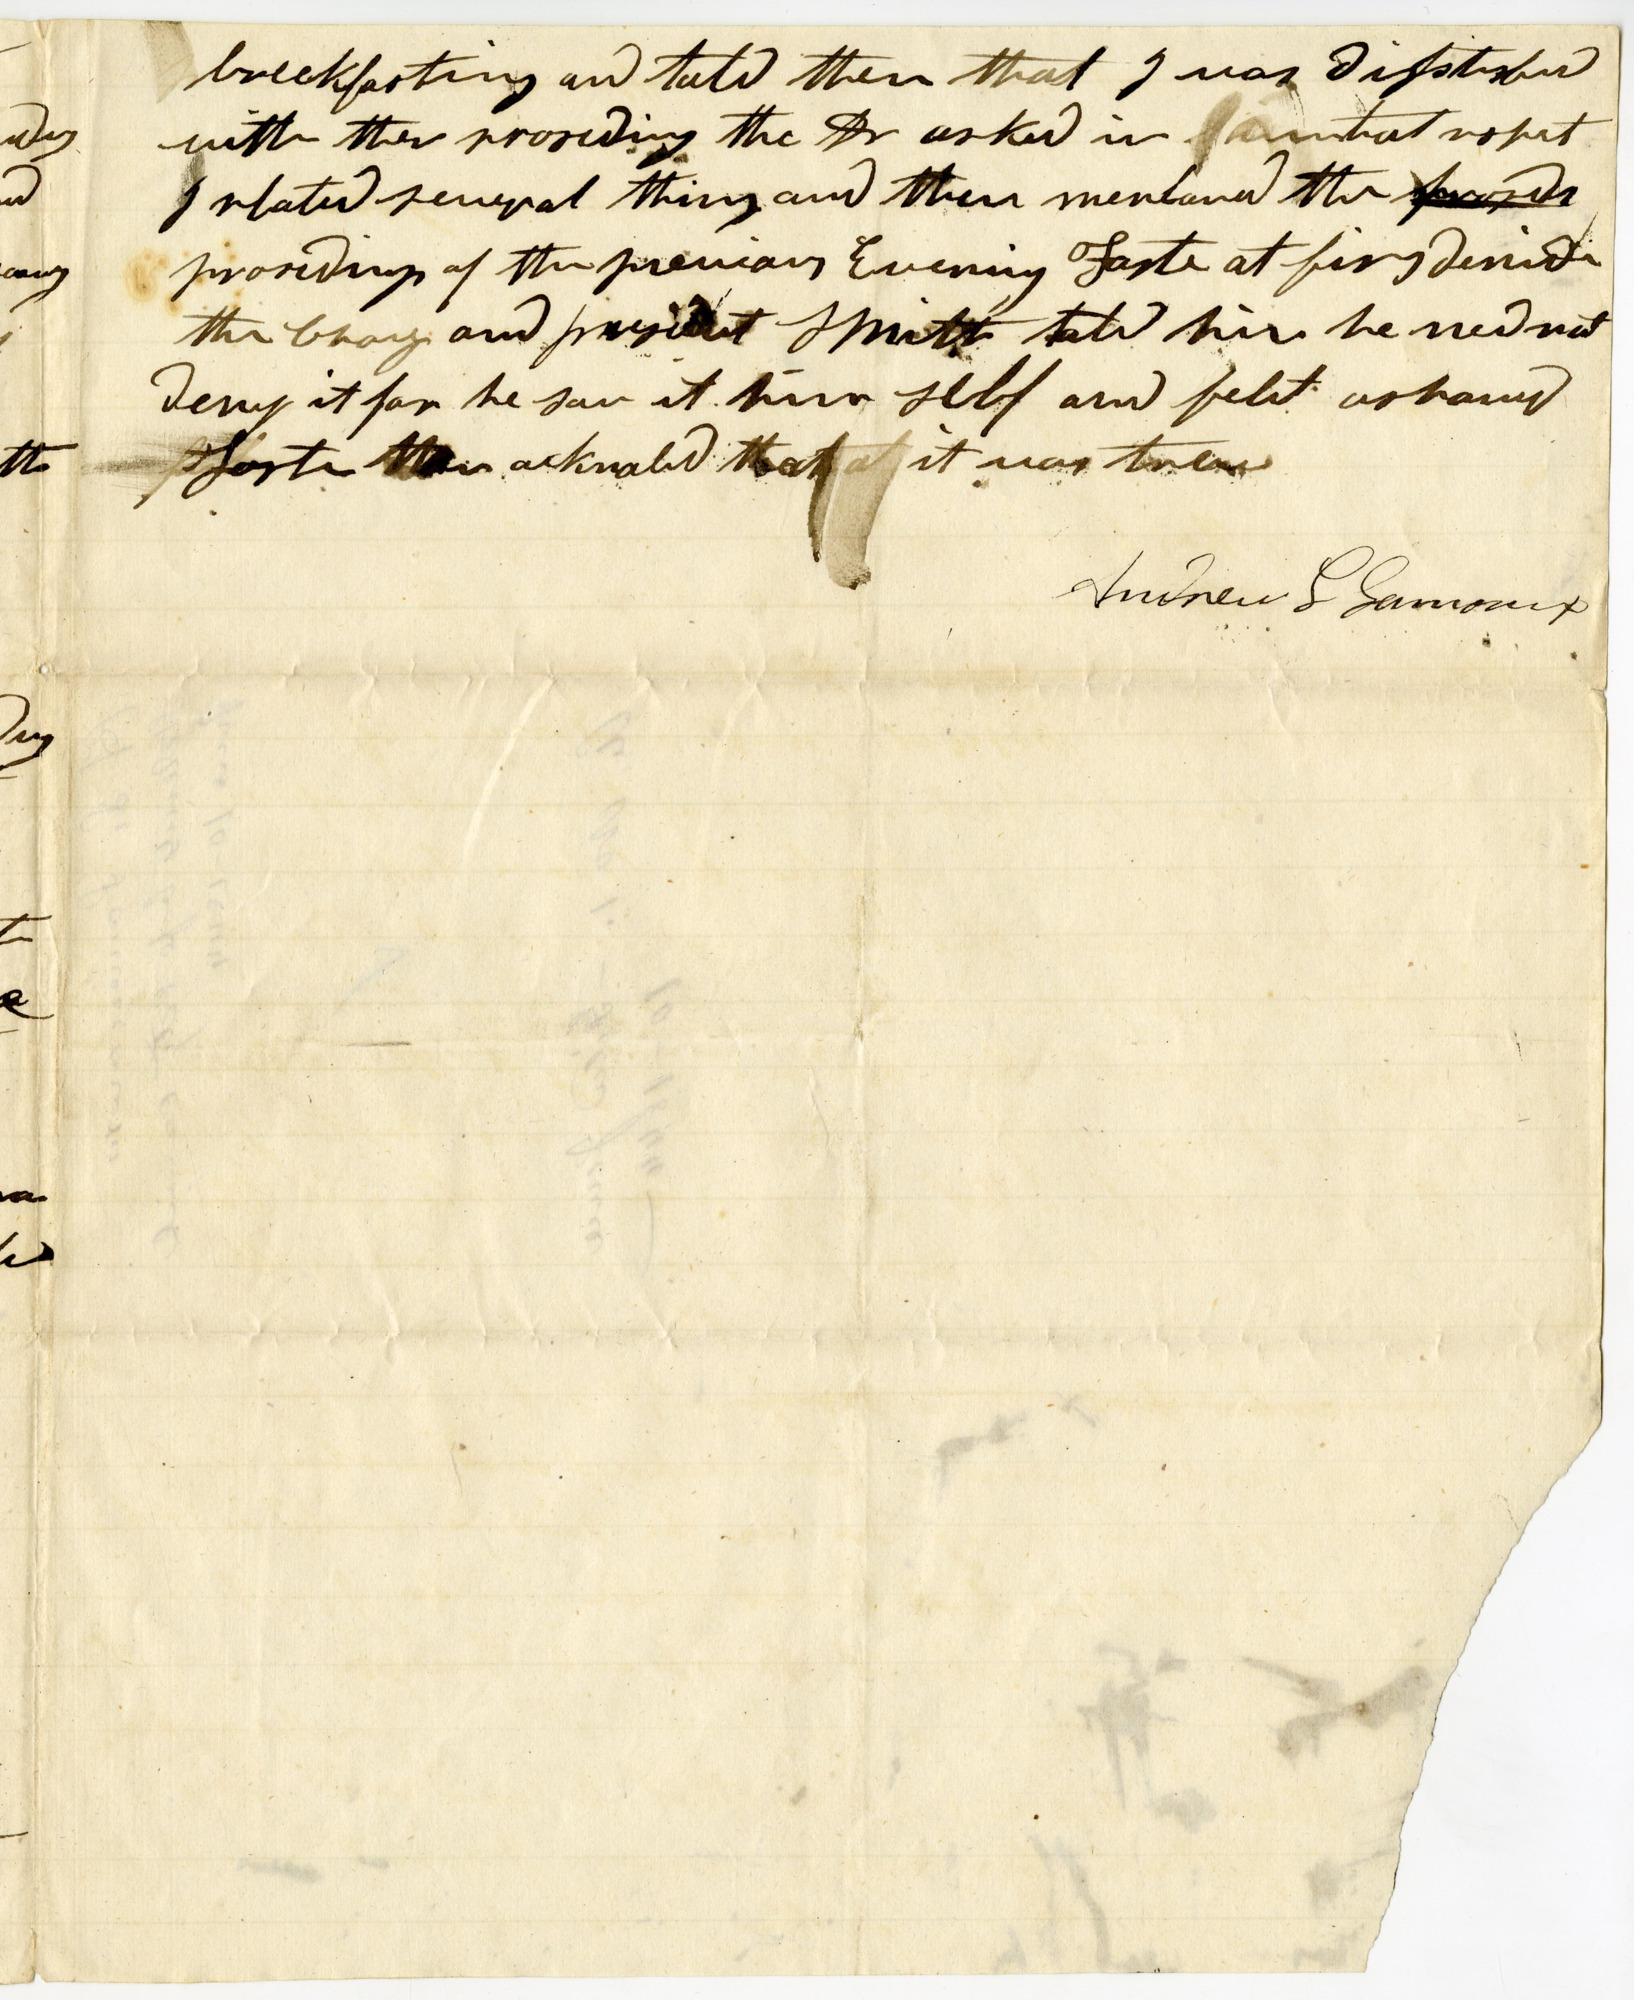 breckfasting and told them that I was disstisfied
with ther proseding the Dr asked in what respet
I related several thing and then mentaned the prosedi
prosedings of the previous Evening Foste at firs denide
the Charg and president Smith told him he ned not
deny it for he saw it him self and felt ashamed
Foster then acknoled that it was trew
Andrew S Lamoreux